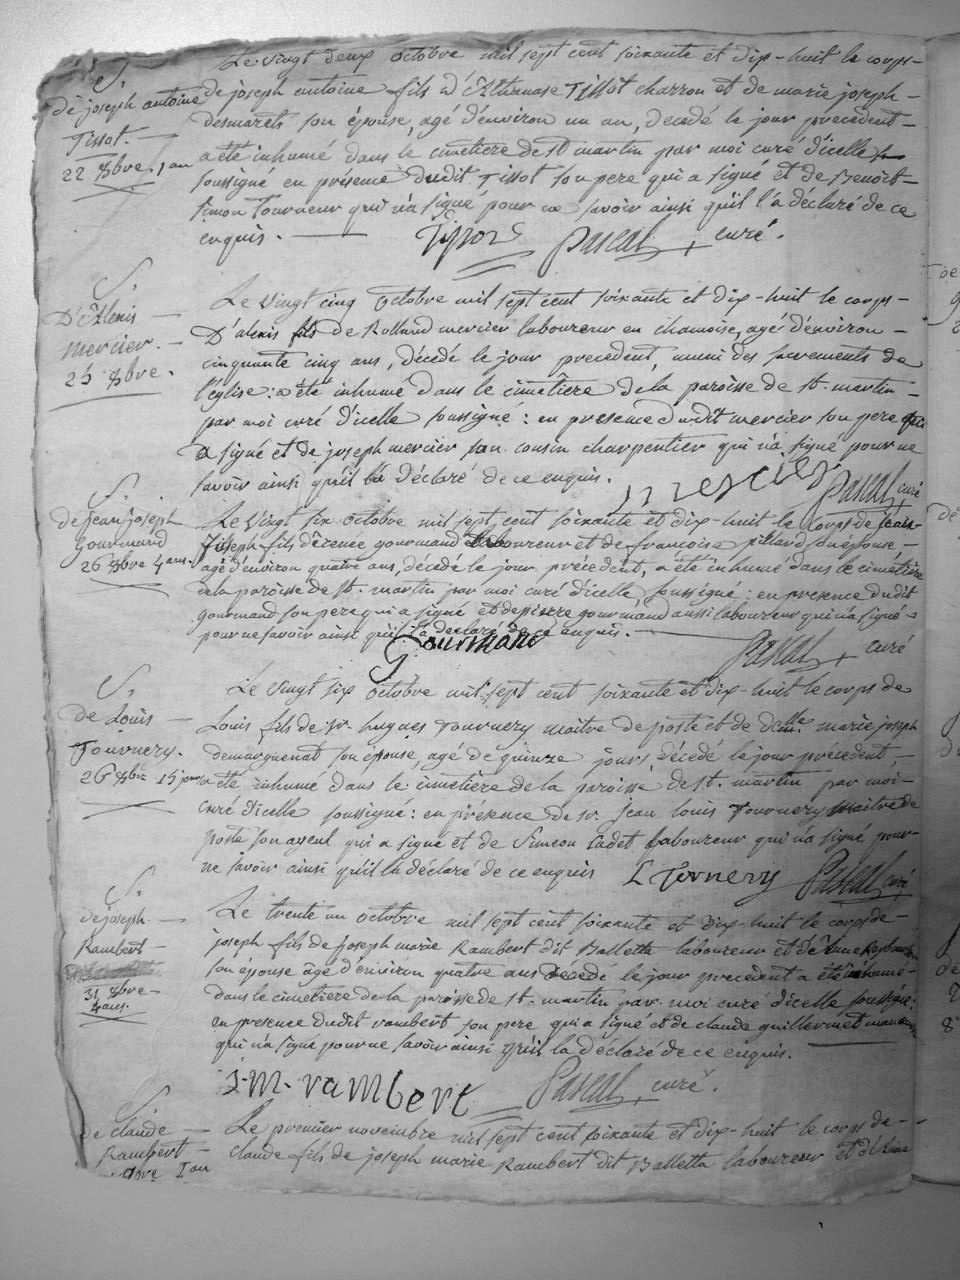 S.
de joseph antoine
Tissot.
22 8bre. 1 an
Le vingt deux octobre mil sept cent soixante et dix-huit le corps-
de joseph antoine fils d'Athanase Tissot charron et de marie joseph-
desmarets son épouse, agé d'environ un an, decédé le jour precedent-
a été inhumé dans le cimetiere de st martin par moi curé d'icelle
soussigné en présence dudit Tissot son pere qui a signé et de Benoit-
simon Tourneur qui n'a signé pour ne savoir ainsi qu'il l'a déclaré de ce
enquis. Tissot Pascal curé.
S.
D'Alexis
mercier.
25 8bre.
Le vingt cinq octobre mil sept cent soixante et dix-huit le corps-
D'alexis fils de Rolland mercier laboureur en chamoise, agé d'environ-
cinquante cinq ans, décédé le jour precedent, muni des sacrements de
l'église: a été inhumé dans le cimetière de la paroisse de st. martin-
par moi curé d'icelle soussigné: en presence dudit mercier son pere qui
a signé et de joseph mercier son cousin charpentier qui n'a signé pour ne
savoir ainsi qu'il l'a déclaré de ce enquis. mercier Pascal curé
S.
de jean joseph
gourmand
26 8bre 4 ans.
Le vingt six octobre mil sept cent soixante et dix-huit le corps de jean
joseph fils d'renée gourmand laboureur et de francoise pillard son épouse-
agé d'environ quatre ans, décédé le jour précédent, a été inhumé dans le cimétière
de la paroisse de st. martin par moi curé d'icelle, soussigné: en presence dudit
gourmand son pere qui a signé et de pierre gourmand aussi laboureur qui n'a signé-
pour ne savoir ainsi qu'il l'a declaré de ce enquis.
Gourmand Pascal curé
S.
de Louis
Tournery.
26 8bre 15 jours
Le vingt six octobre mil sept cent soixante et dix-huit le corps de
Louis fils de sr. hugues Tournery maitre de poste et de delle. marie joseph
demarquenat son épouse, agé de quinze jours, décédé le jour précedent,
a été inhumé dans le cimetière de la paroisse de st. martin par moi-
curé d'icelle soussigné: en présence de sr. jean louis Tournery maitre de
poste son ayeul qui a signé et de Simeon Cadet laboureur qui n'a signé pour-
ne savoir ainsi qu'il l'a déclaré de ce enquis L Tornery Pascal curé
S.
de joseph
Rambert
31 8bre
4 ans.
Le trente un octobre mil sept cent soixante et dix-huit le corps de-
joseph fils de joseph marie Rambert dit Balletta laboureur et d'Anne
son épouse âgé d'environ quatre ans decede le jour precedent a été inhumé-
dans le cimetiere de la paroisse de st. martin par moi curé d'icelle soussigné:
en presence dudit rambert son pere qui a signé et de claude guillermet
qui n'a signé pour ne savoir ainsi qu'il l'a déclaré de ce enquis.
j. m. rambert Pascal curé.
S.
de claude
Rambert
9bre 1 an
Le premier novembre mil sept cent soixante et dix-huit le corps de-
claude fils de joseph marie Rambert dit Balletta laboureur et d'Anne